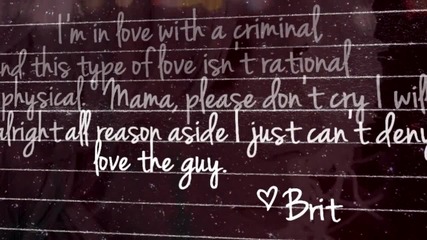 I'm in love with a criminal,
nd this type of love isn't rational
physical. Mama, please don't cry I wil
alright all reason aside I just can't deny
love the guy.
♡ Brit